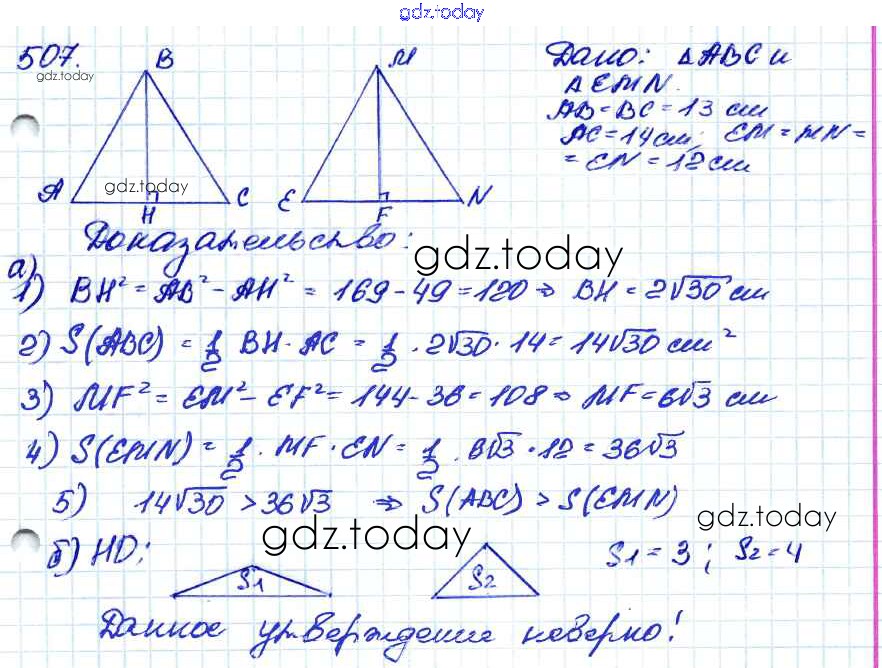 gdz.today
507.
gdz.today
B
A
H
C
gdz.today
M
E
F
N
Дано: △ABC и
△EMN.
AB=BC=13 см
AC=14 см; EM=MN=
=EN=12 см
Доказательство:
gdz.today
а)
1) BH² = AB² - AH² = 169 - 49 = 120 ⇒ BH = 2√30 см
2) S(ABC) = 1/2 BH · AC = 1/2 · 2√30 · 14 = 14√30 см²
3) MF² = EM² - EF² = 144 - 36 = 108 ⇒ MF = 6√3 см
4) S(EMN) = 1/2 · MF · EN = 1/2 · 6√3 · 12 = 36√3
5) 14√30 > 36√3 ⇒ S(ABC) > S(EMN)
gdz.today
gdz.today
б) НО:
S1
S2
S1 = 3 ; S2 = 4
Данное утверждение неверно!